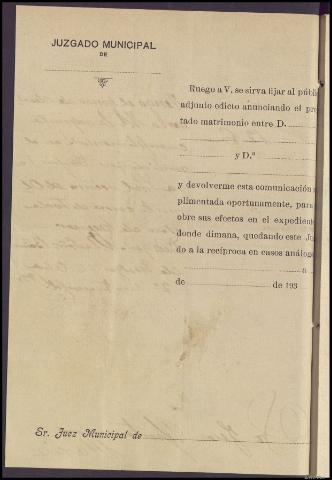 JUZGADO MUNICIPAL
DE
Ruego a V. se sirva fijar al públi
adjunto edicto anunciando el pro
tado matrimonio entre D.
y D.ª
y devolverme esta comunicación
plimentada oportunamente, para
obre sus efectos en el expedient
donde dimana, quedando este Ju
do a la recíproca en casos análog
a
de de 193
Sr. Juez Municipal de